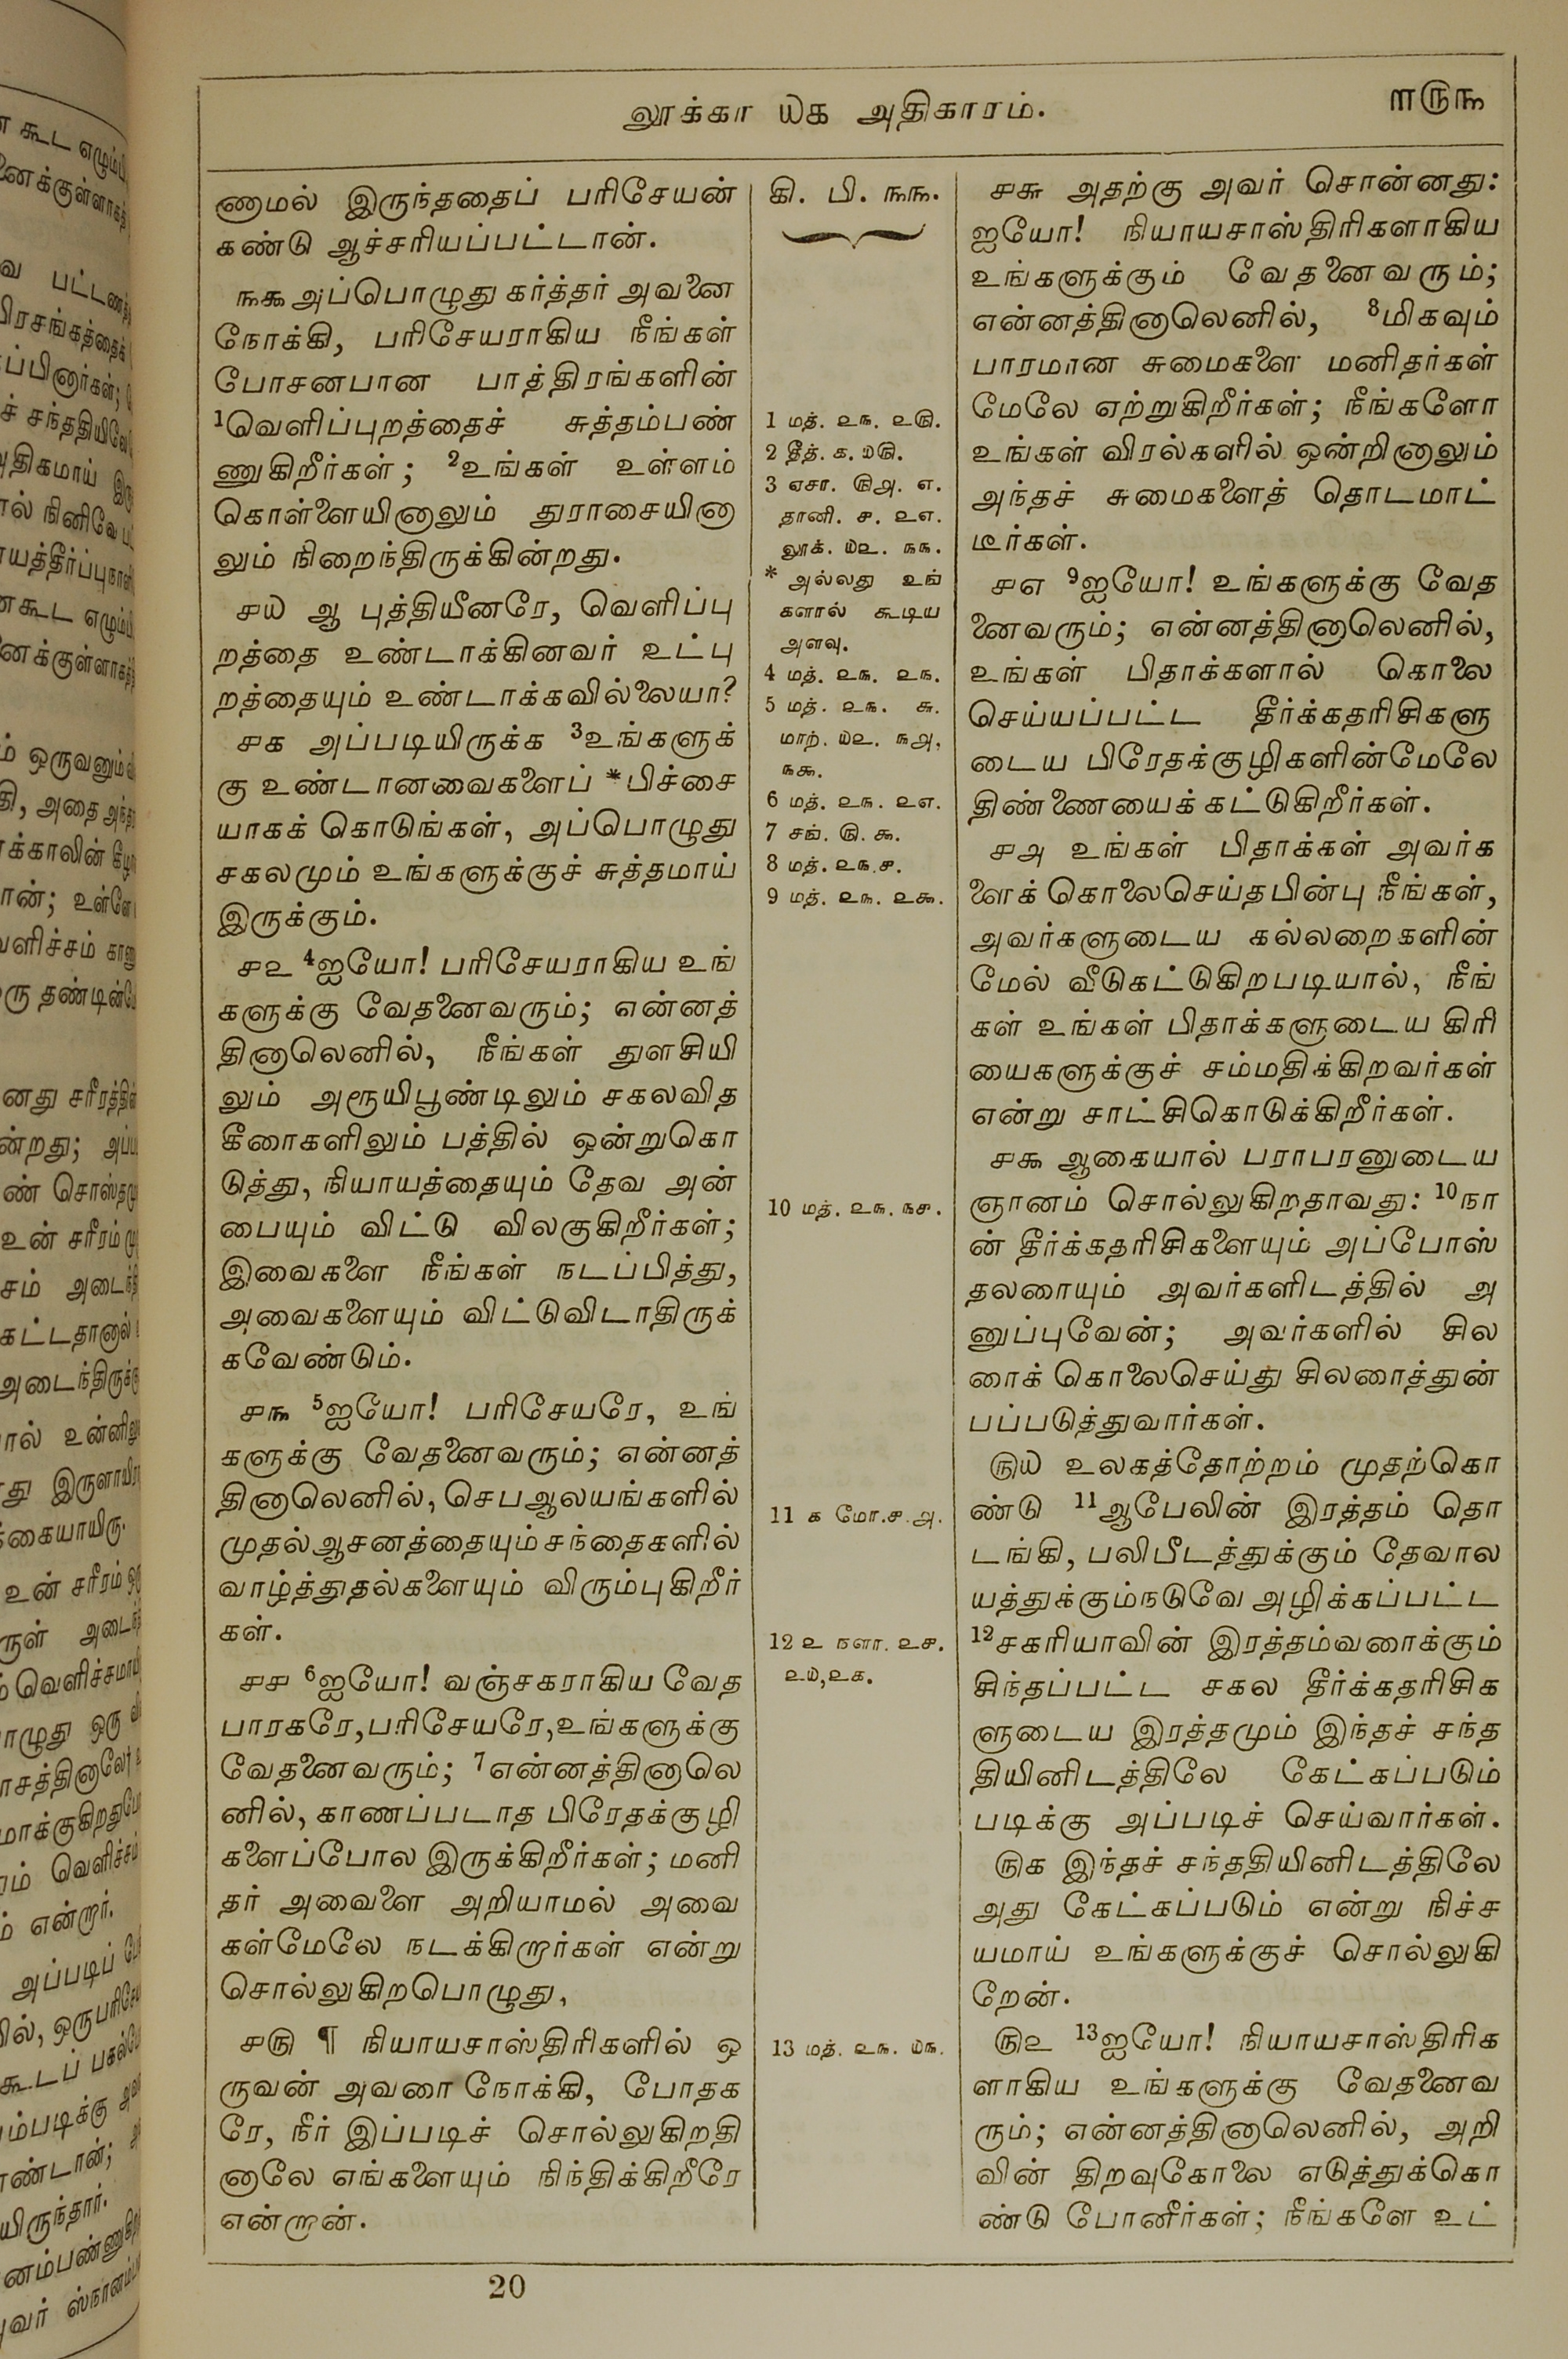 லூக்கா ௰௧ அதிகாரம்.
௱௫௩
ணாமல் இருந்ததைப் பரிசேயன்
கண்டு ஆச்சரியப்பட்டான்.
௩௯ அப்பொழுது கர்த்தர் அவனை
நோக்கி, பரிசேயராகிய நீங்கள்
போசனபான பாத்திரங்களின்
1வெளிப்புறத்தைச் சுத்தம்பண்
ணுகிறீர்கள்; 2உங்கள் உள்ளம்
கொள்ளையினாலும் துராசையினா
லும் நிறைந்திருக்கின்றது.
௪௰ ஆ புத்தியீனரே, வெளிப்பு
றத்தை உண்டாக்கினவர் உட்பு
றத்தையும் உண்டாக்கவில்லையா?
௪௧ அப்படியிருக்க 3உங்களுக்
கு உண்டானவைகளைப் *பிச்சை
யாகக் கொடுங்கள், அப்பொழுது
சகலமும் உங்களுக்குச் சுத்தமாய்
இருக்கும்.
௪௨ 4ஐயோ! பரிசேயராகிய உங்
களுக்கு வேதனைவரும்; என்னத்
தினாலெனில், நீங்கள் துளசியி
லும் அரூயிபூண்டிலும் சகலவித
கீரைகளிலும் பத்தில் ஒன்றுகொ
டுத்து, நியாயத்தையும் தேவ அன்
பையும் விட்டு விலகுகிறீர்கள்;
இவைகளை நீங்கள் நடப்பித்து,
அவைகளையும் விட்டுவிடாதிருக்
கவேண்டும்.
௪௩ 5ஐயோ! பரிசேயரே, உங்
களுக்கு வேதனைவரும்; என்னத்
தினாலெனில், செபஆலயங்களில்
முதல்ஆசனத்தையும் சந்தைகளில்
வாழ்த்துதல்களையும் விரும்புகிறீர்
கள்.
௪௪ 6ஐயோ! வஞ்சகராகிய வேத
பாரகரே, பரிசேயரே, உங்களுக்கு
வேதனைவரும்; 7என்னத்தினாலெ
னில், காணப்படாத பிரேதக்குழி
களைப்போல இருக்கிறீர்கள்; மனி
தர் அவைளை அறியாமல் அவை
கள்மேலே நடக்கிறார்கள் என்று
சொல்லுகிறபொழுது,
௪௫ ¶ நியாயசாஸ்திரிகளில் ஒ
ருவன் அவரை நோக்கி, போதக
ரே, நீர் இப்படிச் சொல்லுகிறதி
னாலே எங்களையும் நிந்திக்கிறீரே
என்றான்.
கி. பி. ௩௩.
1 மத். ௨௩. ௨௫.
2 தீத். ௧. ௰௫.
3 ஏசா. ௫௮. ௭.
தானி. ௪. ௨௭.
லூக். ௰௨. ௩௩.
* அல்லது உங்
களால் கூடிய
அளவு.
4 மத். ௨௩. ௨௩.
5 மத். ௨௩. ௬.
மாற். ௰௨. ௩௮,
௩௯.
6 மத். ௨௩. ௨௭.
7 சங். ௫. ௯.
8 மத். ௨௩. ௪.
9 மத். ௨௩. ௨௯.
10 மத். ௨௩. ௩௪.
11 ௧ மோ. ௪. ௮.
12 ௨ நாளா. ௨௪.
௨௰, ௨௧.
13 மத். ௨௩. ௰௩.
௪௬ அதற்கு அவர் சொன்னது:
ஐயோ! நியாயசாஸ்திரிகளாகிய
உங்களுக்கும் வேதனைவரும்;
என்னத்தினாலெனில், 8மிகவும்
பாரமான சுமைகளை மனிதர்கள்
மேலே ஏற்றுகிறீர்கள்; நீங்களோ
உங்கள் விரல்களில் ஒன்றினாலும்
அந்தச் சுமைகளைத் தொடமாட்
டீர்கள்.
௪௭ 9ஐயோ! உங்களுக்கு வேத
னைவரும்; என்னத்தினாலெனில்,
உங்கள் பிதாக்களால் கொலை
செய்யப்பட்ட தீர்க்கதரிசிகளு
டைய பிரேதக்குழிகளின்மேலே
திண்ணையைக் கட்டுகிறீர்கள்.
௪௮ உங்கள் பிதாக்கள் அவர்க
ளைக் கொலைசெய்தபின்பு நீங்கள்,
அவர்களுடைய கல்லறைகளின்
மேல் வீடுகட்டுகிறபடியால், நீங்
கள் உங்கள் பிதாக்களுடைய கிரி
யைகளுக்குச் சம்மதிக்கிறவர்கள்
என்று சாட்சிகொடுக்கிறீர்கள்.
௪௯ ஆகையால் பராபரனுடைய
ஞானம் சொல்லுகிறதாவது: 10நா
ன் தீர்க்கதரிசிகளையும் அப்போஸ்
தலரையும் அவர்களிடத்தில் அ
னுப்புவேன்; அவர்களில் சில
ரைக் கொலைசெய்து சிலரைத்துன்
பப்படுத்துவார்கள்.
௫௰ உலகத்தோற்றம் முதற்கொ
ண்டு 11ஆபேலின் இரத்தம் தொ
டங்கி, பலிபீடத்துக்கும் தேவால
யத்துக்கும்நடுவே அழிக்கப்பட்ட
12சகரியாவின் இரத்தம்வரைக்கும்
சிந்தப்பட்ட சகல தீர்க்கதரிசிக
ளுடைய இரத்தமும் இந்தச் சந்த
தியினிடத்திலே கேட்கப்படும்
படிக்கு அப்படிச் செய்வார்கள்.
௫௧ இந்தச் சந்ததியினிடத்திலே
அது கேட்கப்படும் என்று நிச்ச
யமாய் உங்களுக்குச் சொல்லுகி
றேன்.
௫௨ 13ஐயோ! நியாயசாஸ்திரிக
ளாகிய உங்களுக்கு வேதனைவ
ரும்; என்னத்தினாலெனில், அறி
வின் திறவுகோலை எடுத்துக்கொ
ண்டு போனீர்கள்; நீங்களே உட்
20